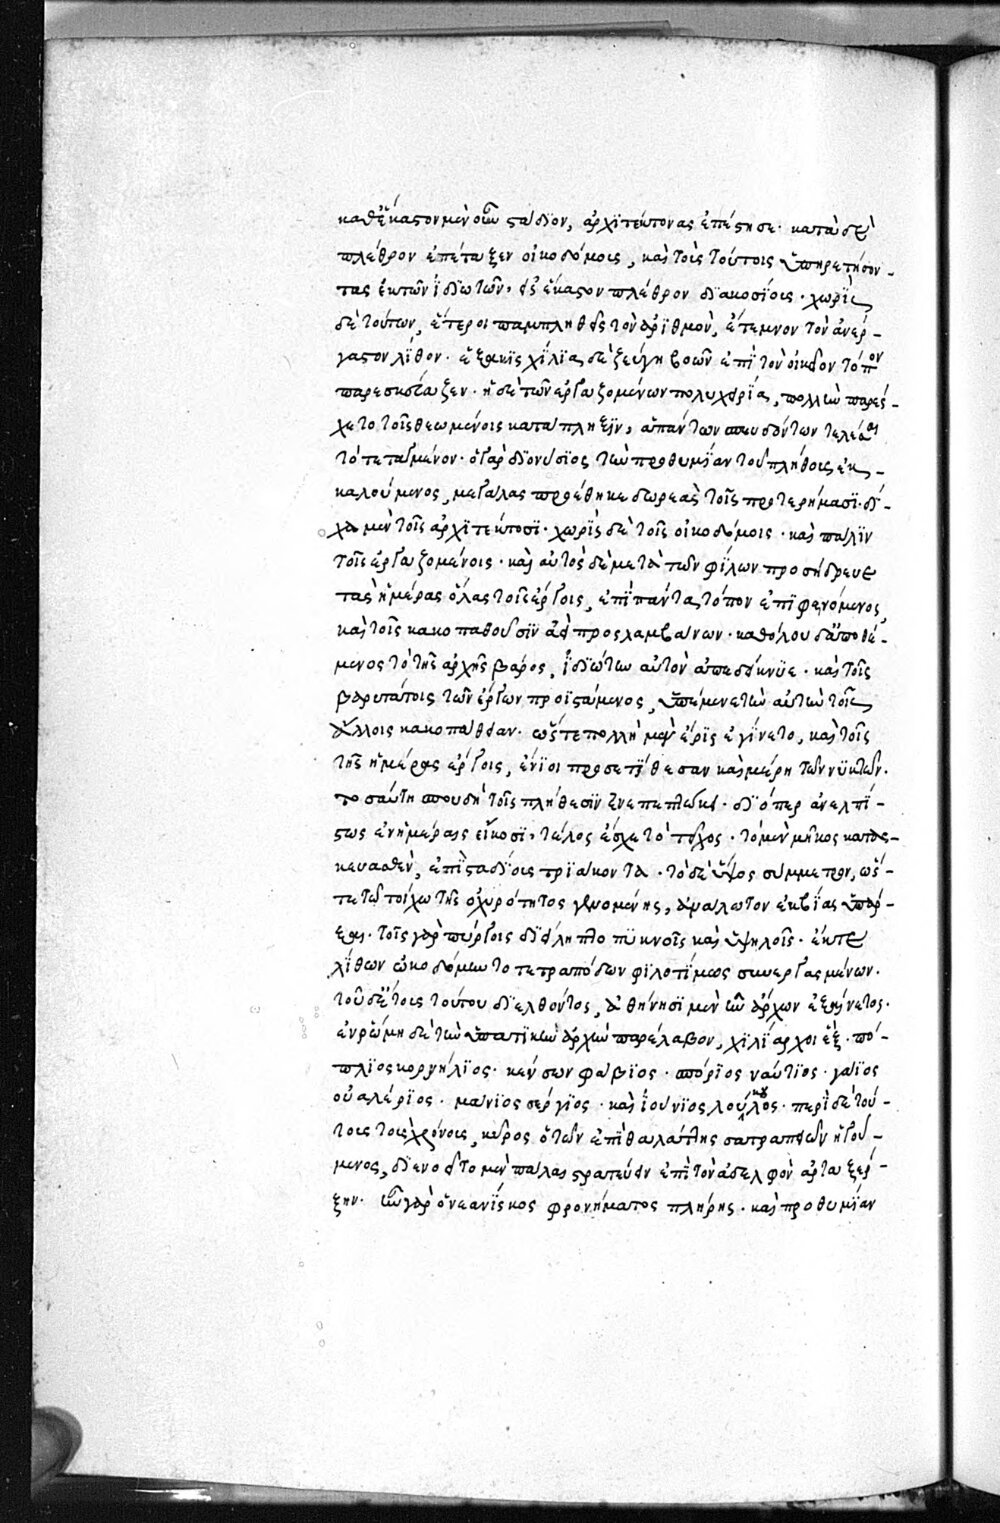 καθ' ἕκαστον μὲν οὖν στάδιον, ἀρχιτέκτονας ἐπέστησε· κατὰ δὲ
πλέθρον ἐπέταξεν οἰκοδόμοις, καὶ τοὺς τούτοις ὑπηρετήσον-
τας ἐκ τῶν ἰδιωτῶν, εἰς ἕκαστον πλέθρον διακοσίοις· χωρὶς
δὲ τούτων, ἕτεροι παμπληθεῖς τὸν ἀριθμὸν, ἔτεμνον τὸν ἀνέρ-
γαστον λίθον· ἑξακισχίλια δὲ ζεύγη βοῶν ἐπὶ τὸν οἰκεῖον τόπον
παρεσκεύαξεν· ἡ δὲ τῶν ἐργαζομένων πολυχειρία, πολλὴν παρεί-
χετο τοῖς θεωμένοις κατάπληξιν, ἁπάντων σπευδόντων τελέσαι
τὸ τεταγμένον· ὁ γὰρ διονύσιος τὴν προθυμίαν τοῦ πλήθους ἐκ-
καλούμενος, μεγάλας προέθηκε δωρεὰς τοῖς προτερήμασι· δί-
χα μὲν τοῖς ἀρχιτέκτοσι· χωρὶς δὲ τοῖς οἰκοδόμοις· καὶ πάλιν
τοῖς ἐργαζομένοις· καὶ αὐτὸς δὲ μετὰ τῶν φίλων προσήδρευε
τὰς ἡμέρας ὅλας τοῖς ἔργοις, ἐπὶ πάντα τόπον ἐπιφαινόμενος,
καὶ τοῖς κακοπαθοῦσιν ἀεὶ προσλαμβάνων· καθόλου δ' ἀποθέ-
μενος τὸ τῆς ἀρχῆς βάρος, ἰδιώτην αὐτὸν ἀπεδείκνυε· καὶ τοῖς
βαρυτάτοις τῶν ἔργων προϊστάμενος, ὑπέμενε τὴν αὐτὴν τοῖς
ἄλλοις κακοπάθειαν· ὥστε πολλὴ μὲν ἔρις ἐγίνετο, καὶ τοῖς
τῆς ἡμέρας ἔργοις, ἔνιοι προσετίθεσαν καὶ μέρη τῶν νυκτῶν·
τοσαύτη σπουδὴ τοῖς πλήθεσιν ἐνεπεπτώκει· διόπερ ἀνελπί-
στως ἐν ἡμέραις εἴκοσι, τέλος ἔσχε τὸ τεῖχος· τὸ μὲν μῆκος κατασ-
κευασθὲν, ἐπὶ σταδίοις τριάκοντα· τὸ δὲ ὕψος σύμμετρον, ὥσ-
τε τῷ τοίχῳ τῆς ὀχυρότητος γενομένης, ἀνάλωτον ἐκ βίας ὑπάρ-
ξαι· τοῖς γὰρ πύργοις διείληπτο πυκνοῖς καὶ ὑψηλοῖς· ἔκ τε
λίθων ᾠκοδόμητο τετραπόδων φιλοτίμως συνεργασμένων·
τοῦ δ' ἔτους τούτου διελθόντος, ἀθήνησι μὲν ἦν ἄρχων ἐξαίνετος·
ἐν ῥώμῃ δὲ τὴν ὑπατικὴν ἀρχὴν παρέλαβον, χιλίαρχοι ἓξ· πό-
πλιος κορνήλιος· καίσων φάβιος· σπόριος ναύτιος· γάϊος
οὐαλέριος· μάνιος σέργιος· καὶ ἰούνιος λούκουλος· περὶ δὲ τού-
τους τοὺς χρόνους, κῦρος ὁ τῶν ἐπὶ θαλάττης σατραπειῶν ἡγού-
μενος, διενοεῖτο μὲν πάλαι στρατεύειν ἐπὶ τὸν ἀδελφὸν ἀρταξέρ-
ξην· ἦν γὰρ ὁ νεανίσκος φρονήματος πλήρης· καὶ προθυμίαν